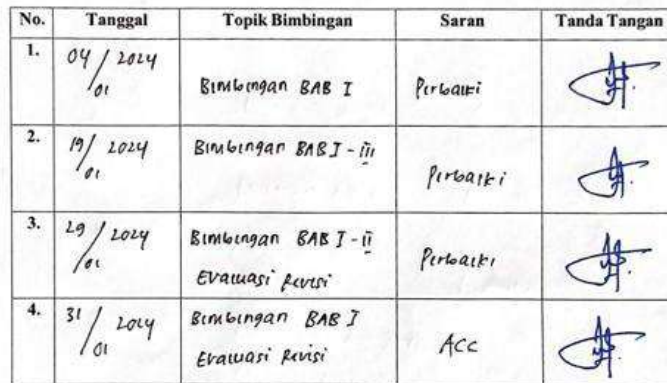 No. Tanggal Topik Bimbingan Saran Tanda Tangan
1. 04/01 2024 Bimbingan BAB I Perbaiki
2. 19/01 2024 Bimbingan BAB I - iii Perbaiki
3. 29/01 2024 Bimbingan BAB I - ii Perbaiki
Evaluasi Revisi
4. 31/01 2024 Bimbingan BAB I ACC
Evaluasi Revisi